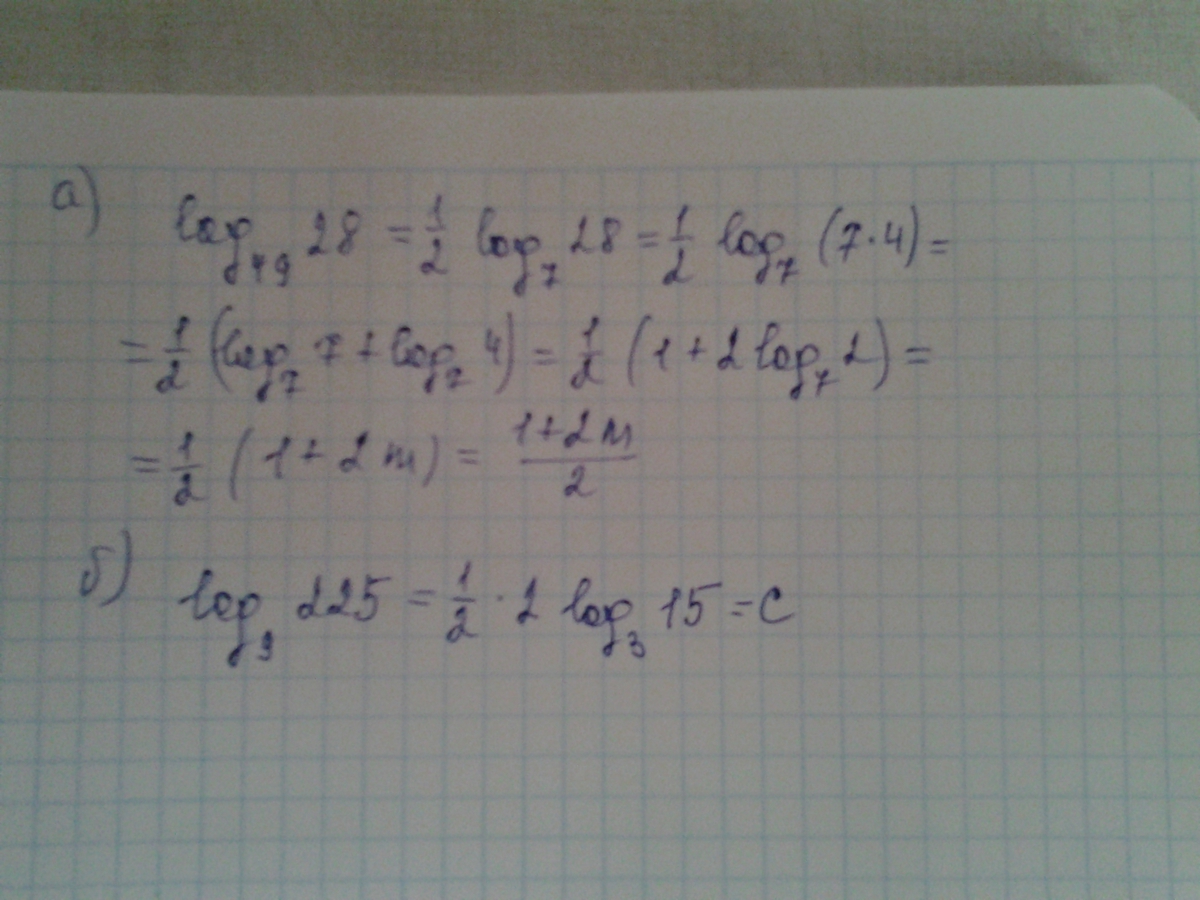 а) log₄₉ 28 = 1/2 log₇ 28 = 1/2 log₇ (7·4) =
= 1/2 (log₇ 7 + log₇ 4) = 1/2 (1 + 2 log₇ 2) =
= 1/2 (1 + 2m) = (1+2m)/2
б) log₉ 225 = 1/2 · 2 log₃ 15 = c